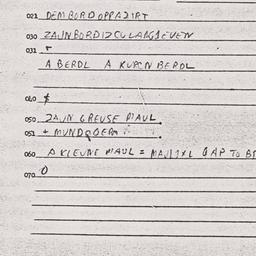 021 DEM BORD OPPADIRT
030 ZAJN BORD IZ CU LANG GEVEN
031 +
A BERDL A KUPCN BERDL
040 $
050 ZAJN GREUSE MAUL.
051 + MUND
060 A KLEUNE MAUL = MAJLEXL GAP TO
070 0